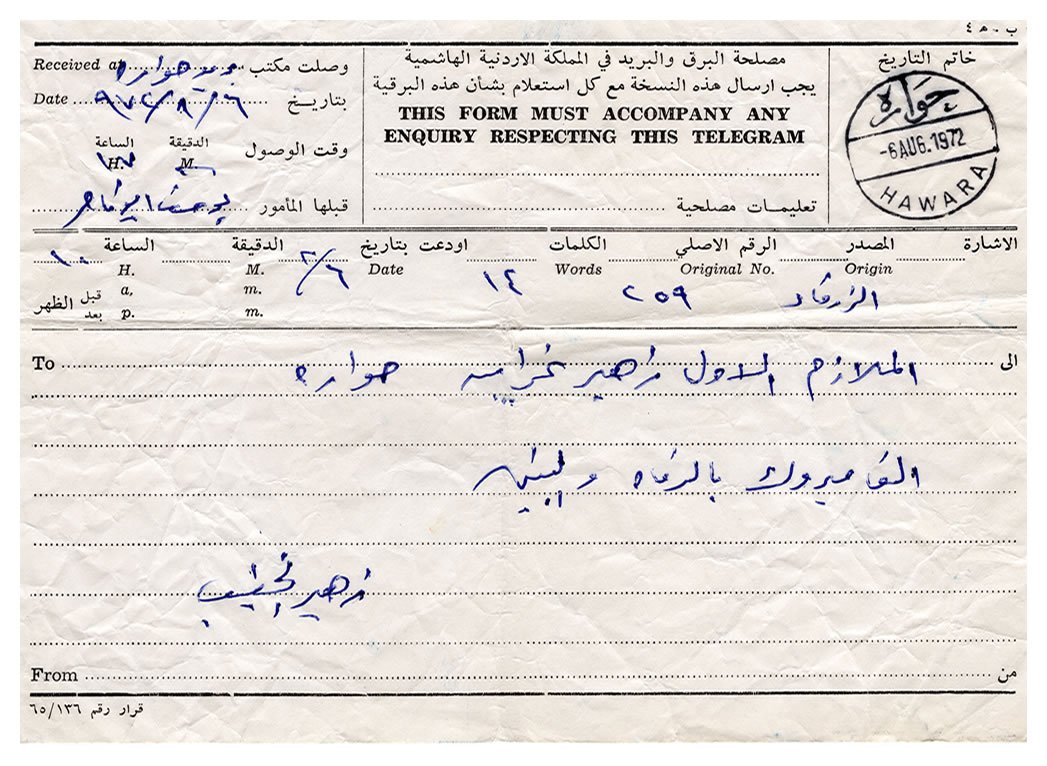 ب - ه ٤
Received at وصلت مكتب بريد حواره
Date بتاريخ ٩٧٢/٨/٦
الساعة الدقيقة
H. M. وقت الوصول
قبلها المأمور يوسف
مصلحة البرق والبريد في المملكة الاردنية الهاشمية
يجب ارسال هذه النسخة مع كل استعلام بشأن هذه البرقية
THIS FORM MUST ACCOMPANY ANY
ENQUIRY RESPECTING THIS TELEGRAM
تعليمات مصلحية
خاتم التاريخ
حوارة
-6 AUG. 1972
HAWARA
الاشارة المصدر الرقم الاصلي الكلمات اودعت بتاريخ الدقيقة الساعة
Origin Original No. Words Date M. H.
٢٥٩ ١٤ ٦/ ١٠
a, m. قبل الظهر
p. m. بعد
To الى
الملازم الاول زهير غرايبه حواره
الف مبروك بالرفاه والبنين
زهير
From من
قرار رقم ٦٥/١٣٦